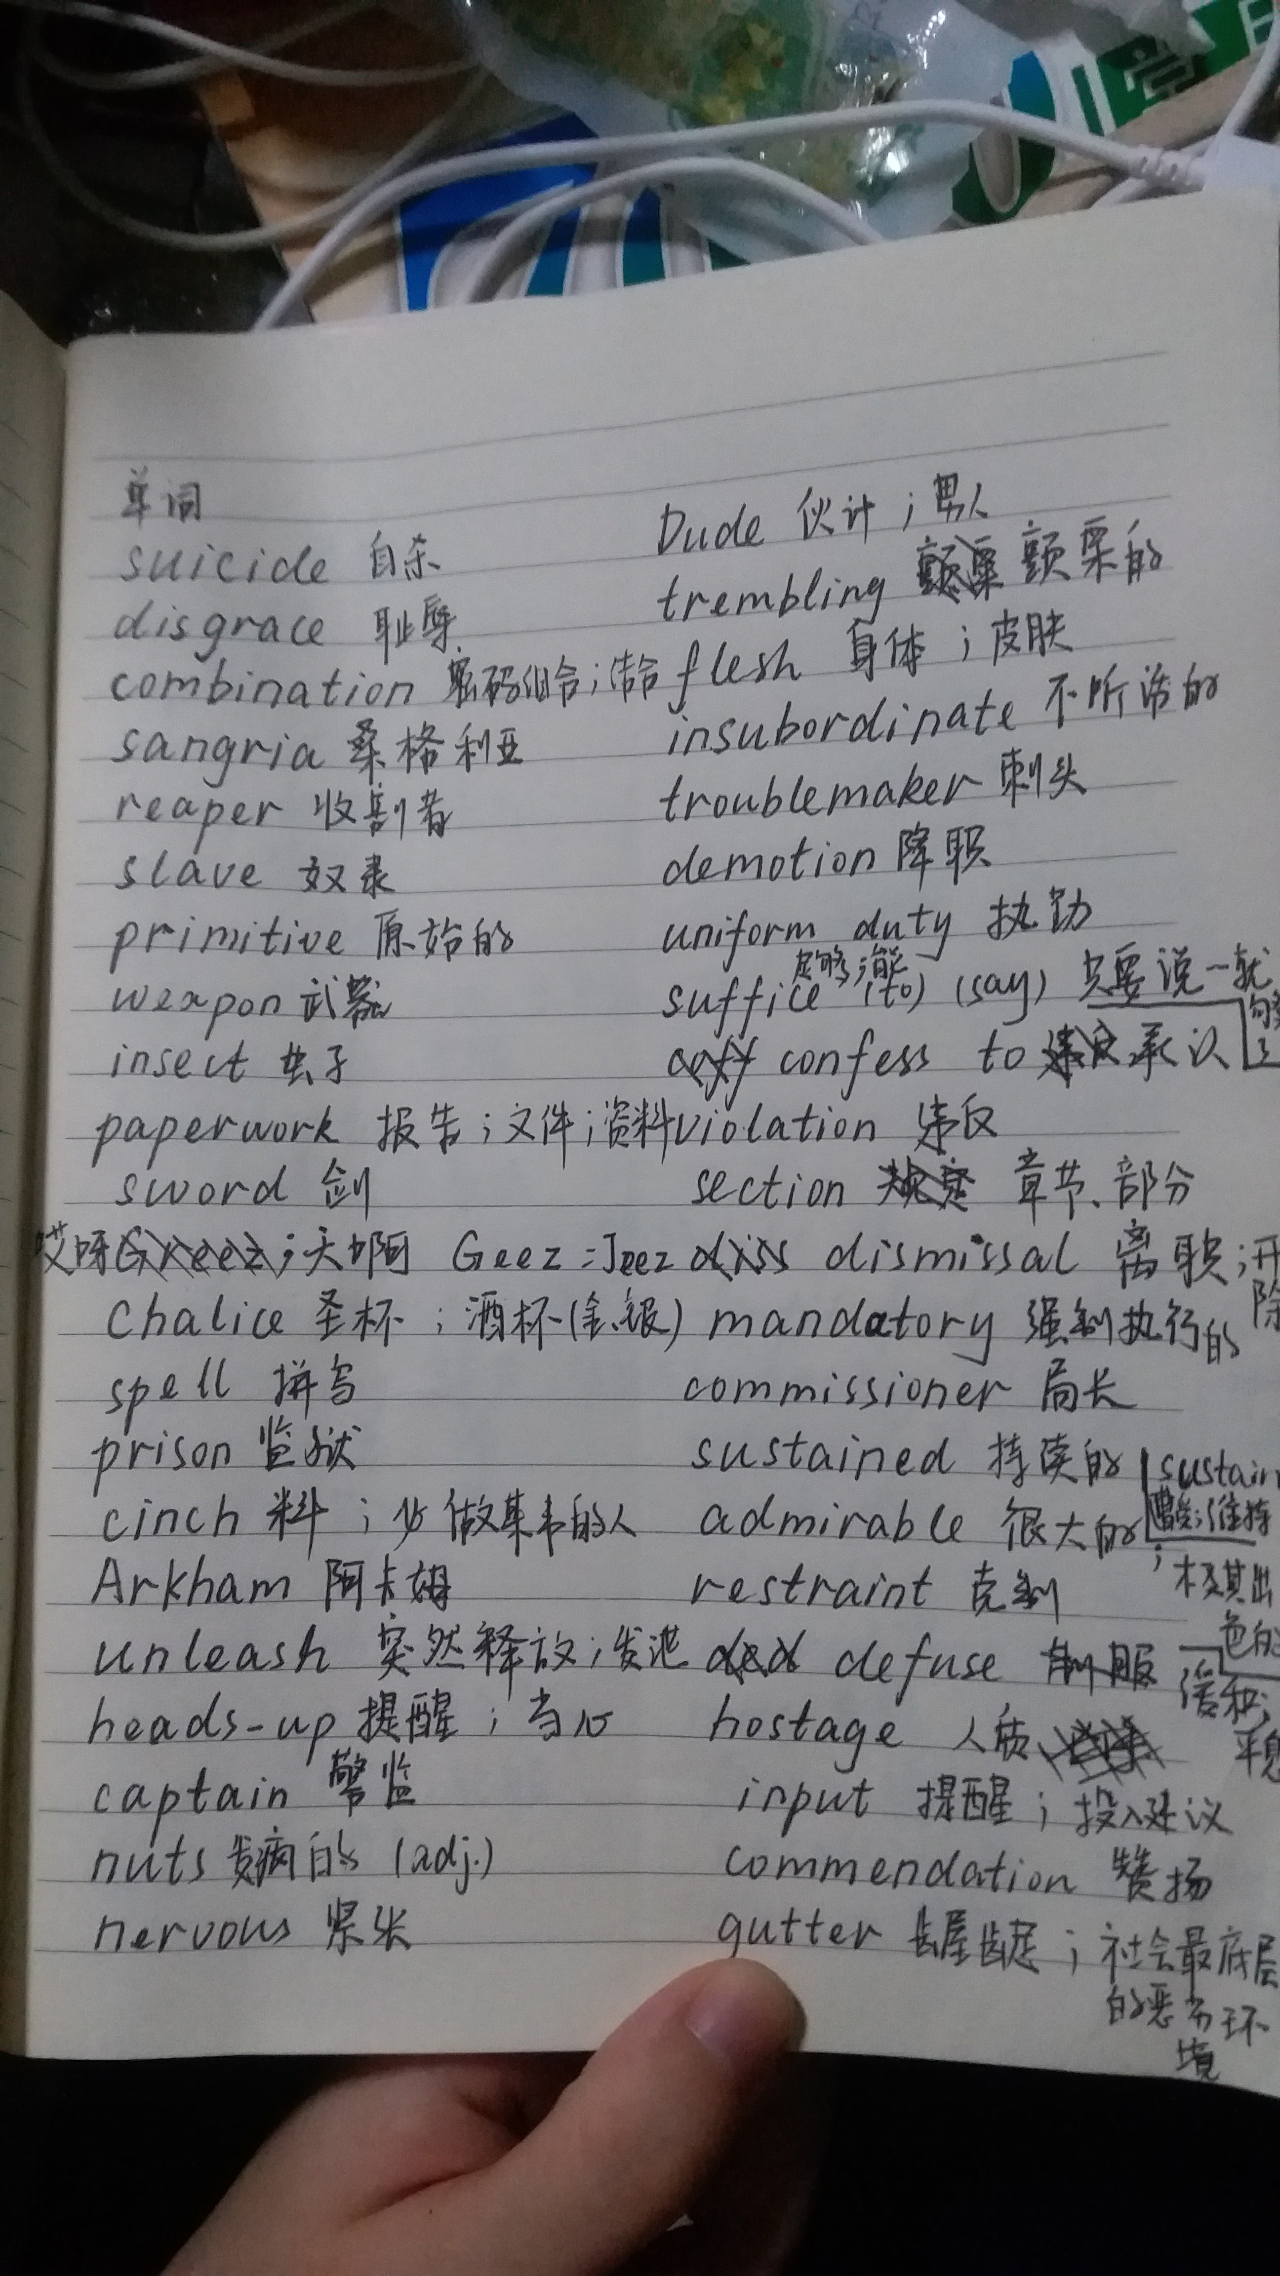 单词
suicide 自杀
disgrace 耻辱
combination 密码组合;结合
sangria 桑格利亚
reaper 收割者
slave 奴隶
primitive 原始的
weapon 武器
insect 虫子
paperwork 报告;文件;资料
sword 剑
哎呀;天啊 Geez=Jeez
Chalice 圣杯;酒杯(金,银)
spell 拼写
prison 监狱
cinch 料;必做某事的人
Arkham 阿卡姆
unleash 突然释放;发泄
heads-up 提醒;当心
captain 警监
nuts 发疯的 (adj.)
nervous 紧张
Dude 伙计;男人
trembling 颤栗的
flesh 身体;皮肤
insubordinate 不听话的
troublemaker 刺头
demotion 降职
uniform duty 执勤
足够;能
suffice (to) (say) 只要说一就
够了
confess to 承认
violation 违反
section 章节、部分
dismissal 离职;开
除
mandatory 强制执行的
commissioner 局长
sustained 持续的 sustain
维持
admirable 很大的
;极其出
色的
restraint 克制
defuse 制服
缓和;
平息
hostage 人质
input 提醒;投入建议
commendation 赞扬
gutter 龌龊;社会最底层
的恶劣环
境